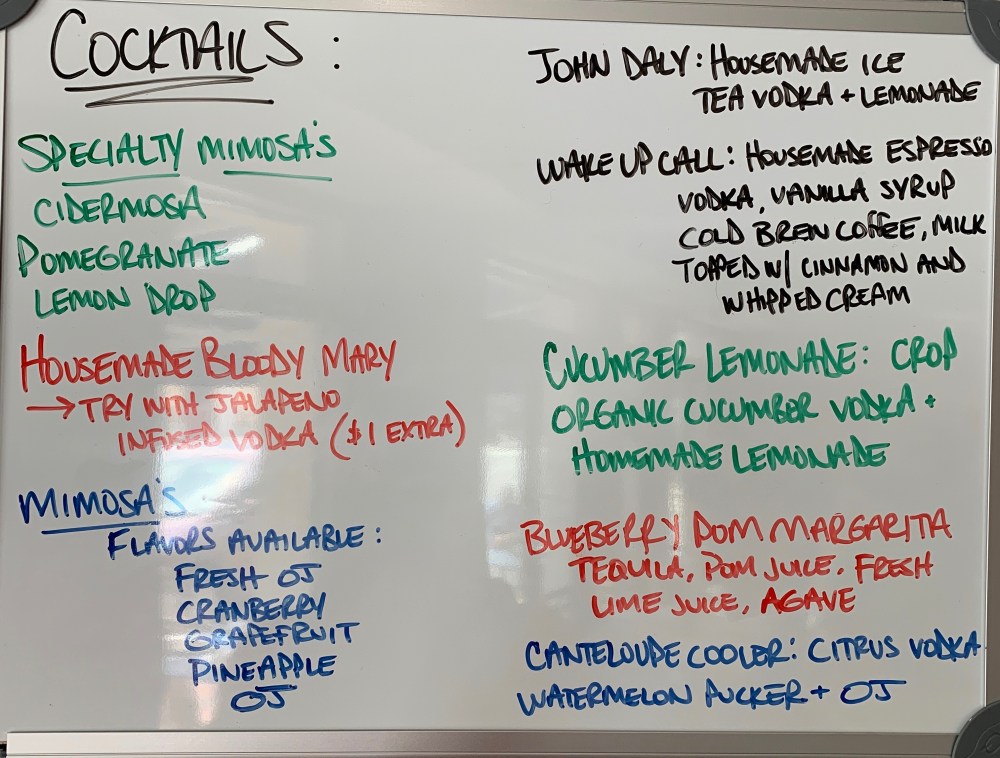 COCKTAILS:
SPECIALTY MIMOSA'S
CIDERMOSA
POMEGRANATE
LEMON DROP
HOUSEMADE BLOODY MARY
→ TRY WITH JALAPENO
INFUSED VODKA ($1 EXTRA)
MIMOSA'S
FLAVORS AVAILABLE:
FRESH OJ
CRANBERRY
GRAPEFRUIT
PINEAPPLE
OJ
JOHN DALY: HOUSEMADE ICE
TEA VODKA + LEMONADE
WAKE UP CALL: HOUSEMADE ESPRESSO
VODKA, VANILLA SYRUP
COLD BREW COFFEE, MILK
TOPPED W/ CINNAMON AND
WHIPPED CREAM
CUCUMBER LEMONADE: CROP
ORGANIC CUCUMBER VODKA +
HOMEMADE LEMONADE
BLUEBERRY POM MARGARITA
TEQUILA, POM JUICE, FRESH
LIME JUICE, AGAVE
CANTELOUPE COOLER: CITRUS VODKA
WATERMELON PUCKER + OJ